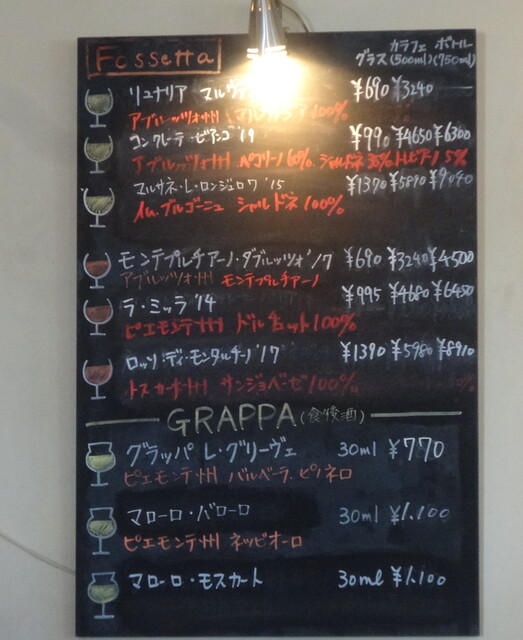 Fossetta
カラフェ ボトル
グラス (500ml) (750ml)
リュナリア マルヴ ¥690 ¥3240
アブルッツォ州 100%
コンクレーテ・ビアンコ '19 ¥990 ¥4650 ¥6300
アブルッツォ州 ペコリーノ 60% シャルドネ 35% トレビアーノ 5%
マルサネ・レ・ロンジュロワ '15 ¥1370 ¥5890
仏・ブルゴーニュ シャルドネ 100%
モンテプルチアーノ・ダブルッツォ '17 ¥690 ¥3240 ¥4500
アブルッツォ州 モンテプルチアーノ
ラ・ミッラ '14 ¥995 ¥4680 ¥6450
ピエモンテ州 ドルチェット 100%
ロッソ・ディ・モンタルチーノ '17 ¥1390 ¥5980 ¥8910
トスカーナ州 サンジョベーゼ 100%
GRAPPA (食後酒)
グラッパ レ・グリーヴェ 30ml ¥770
ピエモンテ州 バルベーラ、ピノネロ
マローロ・バローロ 30ml ¥1,100
ピエモンテ州 ネッビオーロ
マローロ・モスカート 30ml ¥1,100